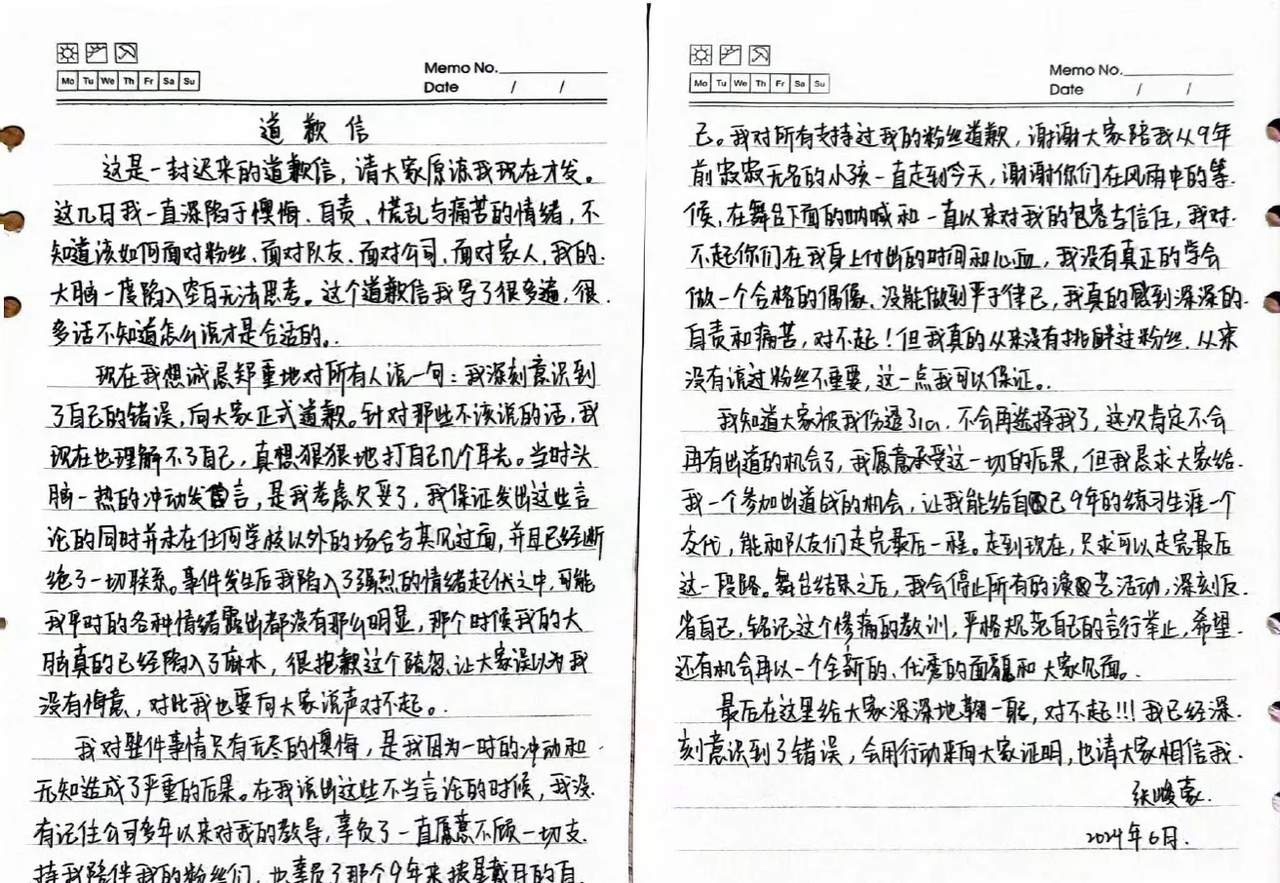 Mo Tu We Th Fr Sa Su
Memo No.
Date / /
道歉信
这是一封迟来的道歉信，请大家原谅我现在才发。
这几日我一直深陷于懊悔、自责、慌乱与痛苦的情绪，不
知道该如何面对粉丝、面对队友、面对公司、面对家人，我的
大脑一度陷入空白无法思考。这个道歉信我写了很多遍，很
多话不知道怎么说才是合适的。
现在我想诚恳郑重地对所有人说一句：我深刻意识到
了自己的错误，向大家正式道歉。针对那些不该说的话，我
现在也理解不了自己，真想狠狠地打自己几个耳光。当时头
脑一热的冲动发言，是我考虑欠妥了，我保证发出这些言
论的同时并未在任何学校以外的场合与其见过面，并且已经断
绝了一切联系。事件发生后我陷入了强烈的情绪起伏之中，可能
我平时的各种情绪露出都没有那么明显，那个时候我的大
脑真的已经陷入了麻木，很抱歉这个疏忽、让大家误以为我
没有悔意，对此我也要向大家说声对不起。
我对整件事情只有无尽的懊悔，是我因为一时的冲动和
无知造成了严重的后果。在我说出这些不当言论的时候，我没
有记住公司多年以来对我的教导，辜负了一直愿意不顾一切支
持我陪伴我的粉丝们，也辜负了那个9年来披星戴月的自
Mo Tu We Th Fr Sa Su
Memo No.
Date / /
己。我对所有支持过我的粉丝道歉，谢谢大家陪我从9年
前寂寂无名的小孩一直走到今天，谢谢你们在风雨中的等
候、在舞台下面的呐喊和一直以来对我的包容与信任，我对
不起你们在我身上付出的时间和心血，我没有真正的学会
做一个合格的偶像、没能做到严于律己，我真的感到深深的
自责和痛苦，对不起！但我真的从来没有挑衅过粉丝、从来
没有说过粉丝不重要，这一点我可以保证。
我知道大家被我伤透了心，不会再选择我了，这次肯定不会
再有出道的机会了，我愿意承受这一切的后果，但我恳求大家给
我一个参加出道战的机会，让我能给自己9年的练习生涯一个
交代，能和队友们走完最后一程。走到现在，只求可以走完最后
这一段路。舞台结束之后，我会停止所有的演艺活动，深刻反
省自己，铭记这个惨痛的教训，严格规范自己的言行举止，希望
还有机会再以一个全新的、优秀的面貌和大家见面。
最后在这里给大家深深地鞠一躬，对不起！！！我已经深
刻意识到了错误，会用行动来向大家证明，也请大家相信我.
张峻豪.
2024年6月.